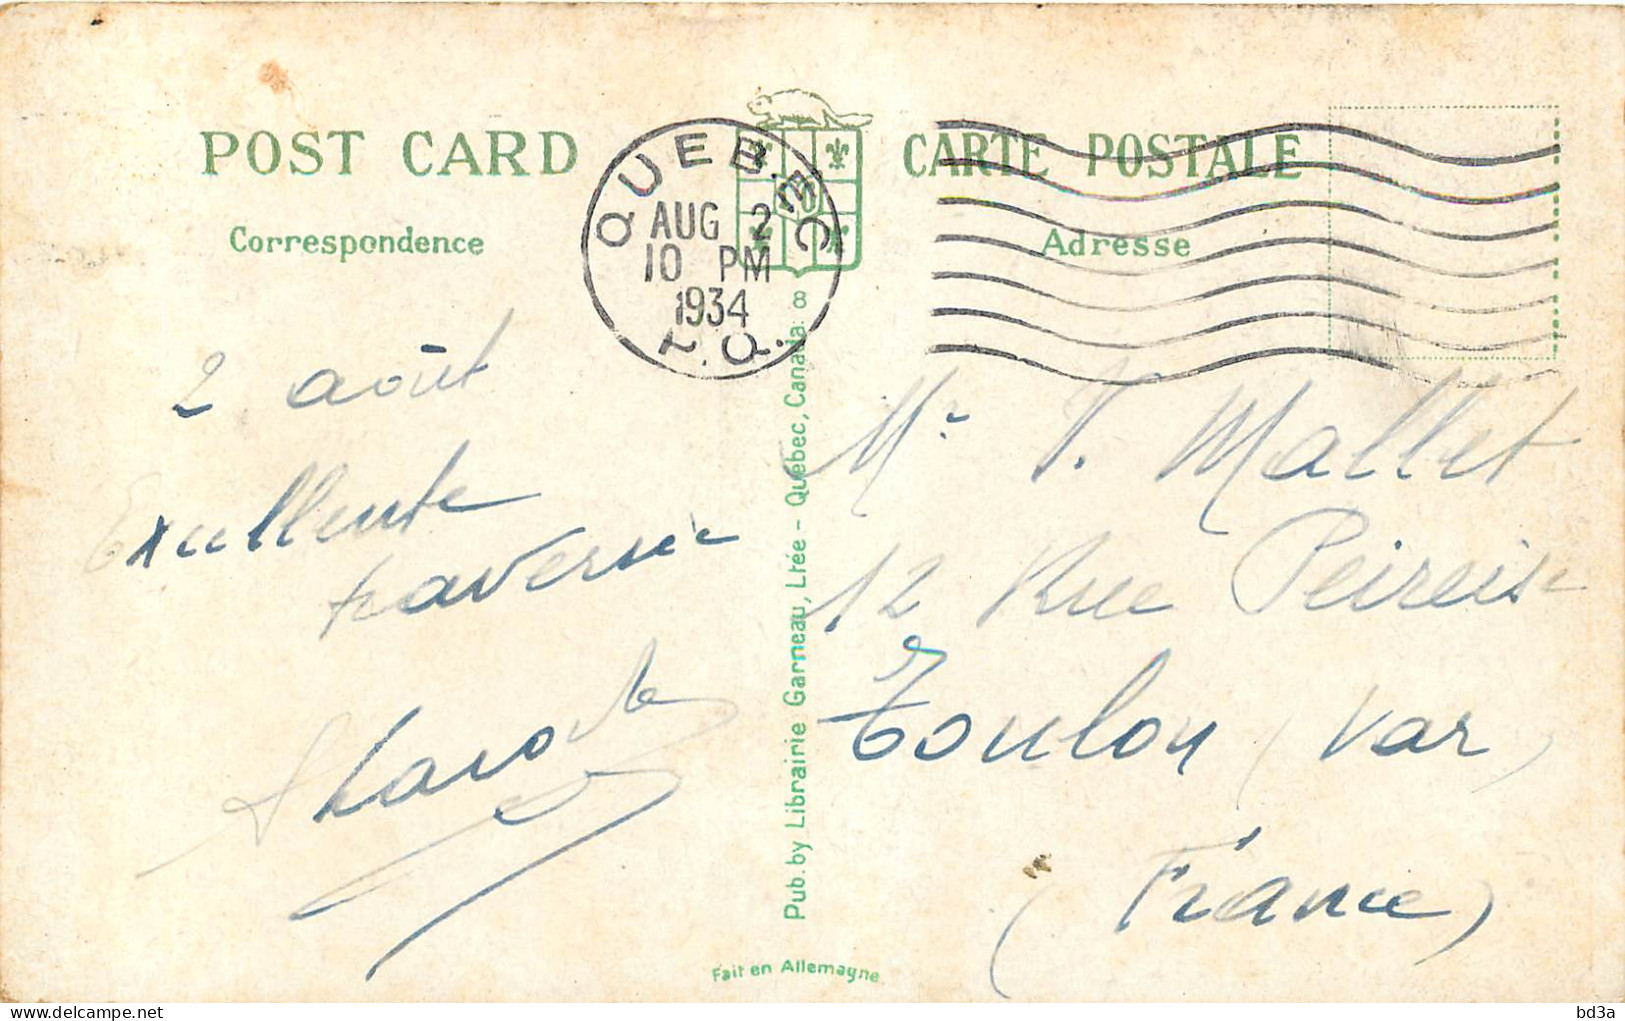 POST CARD
CARTE POSTALE
Correspondence
Adresse
QUEBEC
AUG 2
10 PM
1934
P.Q.
2 août
Excellente
traversée
Mr. Mallet
12 Rue Peiresc
Toulon (Var)
(France)
Pub. by Librairie Garneau, Ltée - Québec, Canada. 8
Fait en Allemagne
bd3a